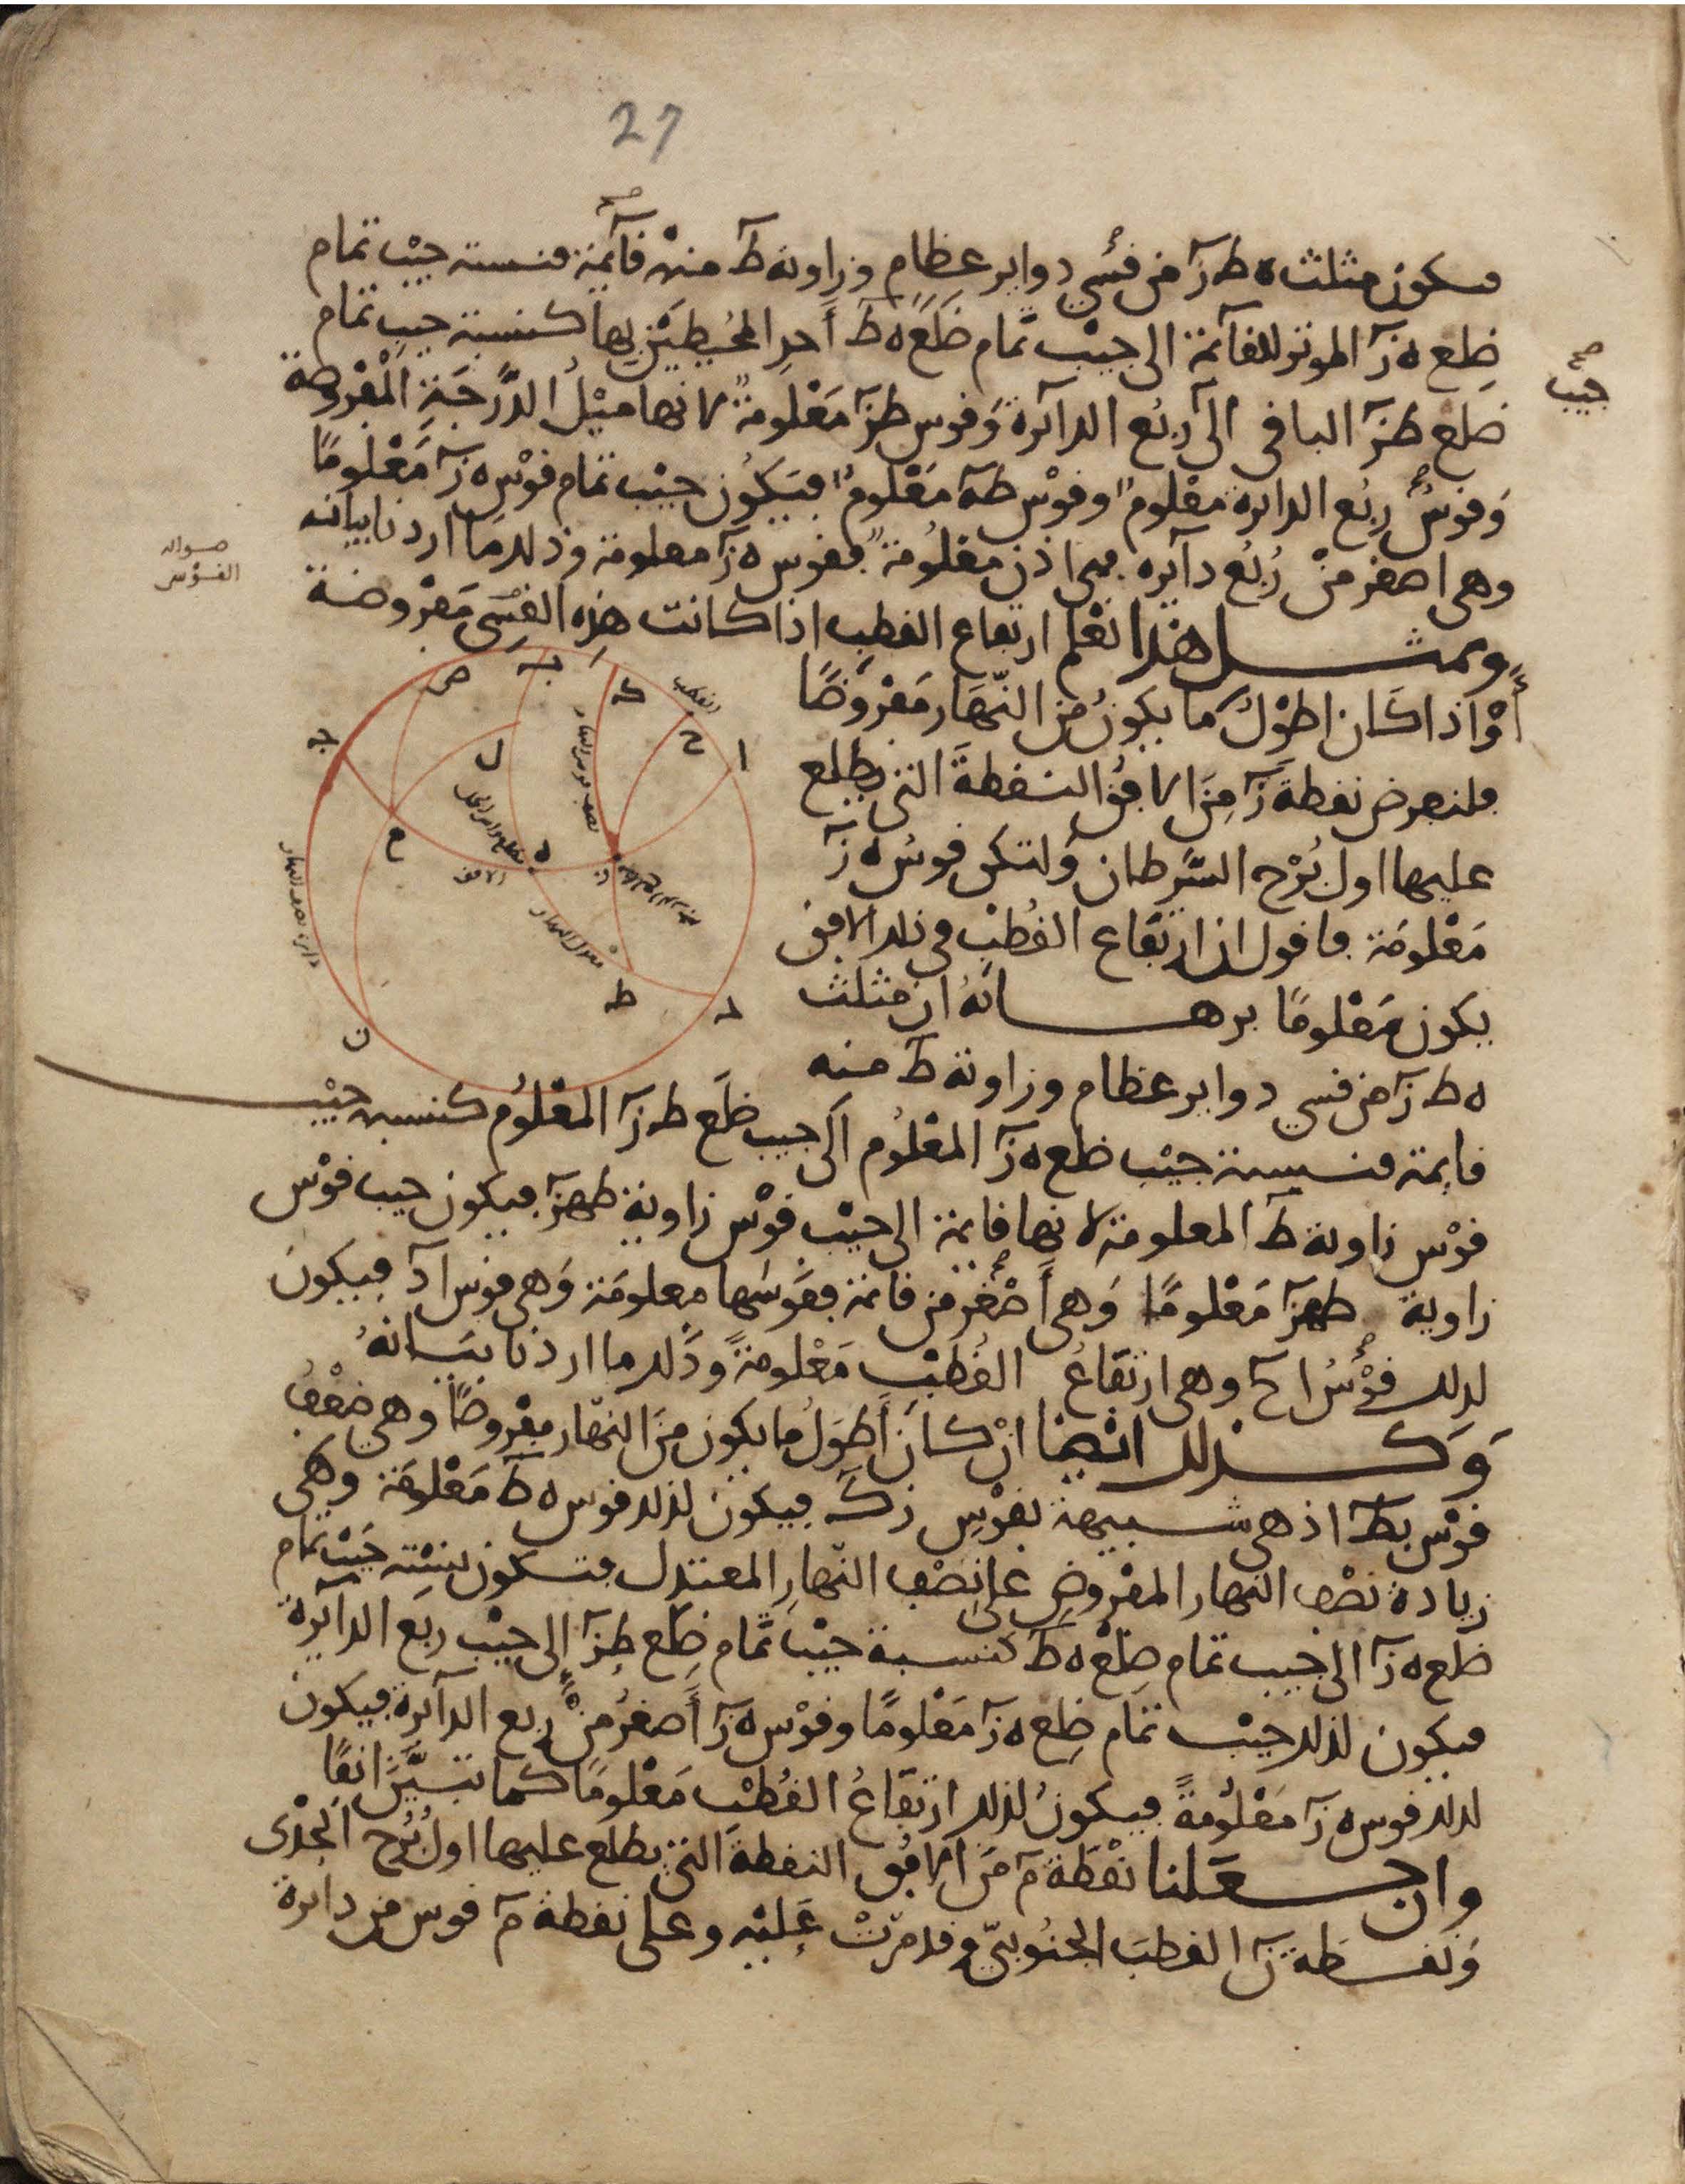 27
فيكون مثلث ه ط ز من قسي دواير عظام وزاوية ط منه قائمة فنسبة جيب تمام
ضلع ه ز الموتر للقائمة الى جيب تمام ضلع ه ط أحد المحيطين بها كنسبة جيب تمام
جيب
ضلع طز الباقي الى ربع الدائرة وقوس طز معلومة لانها ميل الدرجة المفروضة
وقوس ربع الدايرة معلوم وقوس طه معلوم فيكون جيب تمام قوس ه ز معلوما
وهي اصغر من ربع دآيره فهي اذن معلومة فقوس ه ز معلومة وذلك ما اردنا بيانه
صوابه القوس
وبمثل هذا نعلم ارتفاع القطب اذا كانت هذه القسي مفروضة
أو اذا كان اطول ما يكون من النهار مفروضا
فلنفرض نقطة ز من الافق النقطة التي يطلع
عليها اول برج السرطان ولتكن قوس ه ز
معلومة فاقول ان ارتفاع القطب في ذلك الافق
يكون معلوما برهانه ان مثلث
ه ط ز من قسي دواير عظام وزاوية ط منه
قايمة فنسبة جيب ضلع ه ز المعلوم الى جيب ضلع ط ز المعلوم كنسبه جيب
قوس زاوية ط المعلومة لانها قايمة الى جيب قوس زاوية طهز فيكون جيب قوس
زاوية طهز معلوما وهي أصغر من قائمة فقوسها معلومة وهي قوس اد فيكون
لذلك قوس اح وهي ارتفاع القطب معلومة وذلك ما اردنا بيانه
وكذلك ايضا ان كان أطول ما يكون من النهار مفروضا وهي ضعف
قوس بط اذ هي شبيهة بقوس زك فيكون لذلك قوس ه ط معلومة وهي
زيادة نصف النهار المفروض على نصف النهار المعتدل فتكون نسبة جيب تمام
ضلع ه ز الى جيب تمام ضلع ه ط كنسبة جيب تمام ضلع طز الى جيب ربع الدآئرة
فيكون لذلك جيب تمام ضلع ه ز معلوما وقوس ه ز أصغر من ربع الدآئرة فيكون
لذلك قوس ه ز معلومة فيكون لذلك ارتفاع القطب معلوما كما تبين انفا
وان جعلنا نقطة م من الافق النقطة التي يطلع عليها اول برج الجدى
ونقطة ن القطب الجنوبي وقد مرت عليه وعلى نقطة م قوس من دايرة
ا
القطب
ح
ك
ب
ص
ج
ل
ع
ه
ز
ط
د
ن
الافق
معدل النهار
دائرة نصف النهار
نصف قوس النهار